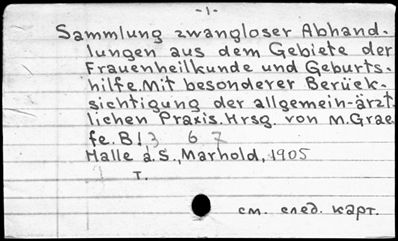 -1-
Sammlung zwangloser Abhand-
lungen aus dem Gebiete der
Frauenheilkunde und Geburts-
hilfe. Mit besonderer Berück-
sichtigung der allgemein-ärzt-
lichen Praxis. Hrsg. von M. Grae-
fe. Bd 3 6 7
Halle a. S., Marhold, 1905
т.
см. след. карт.